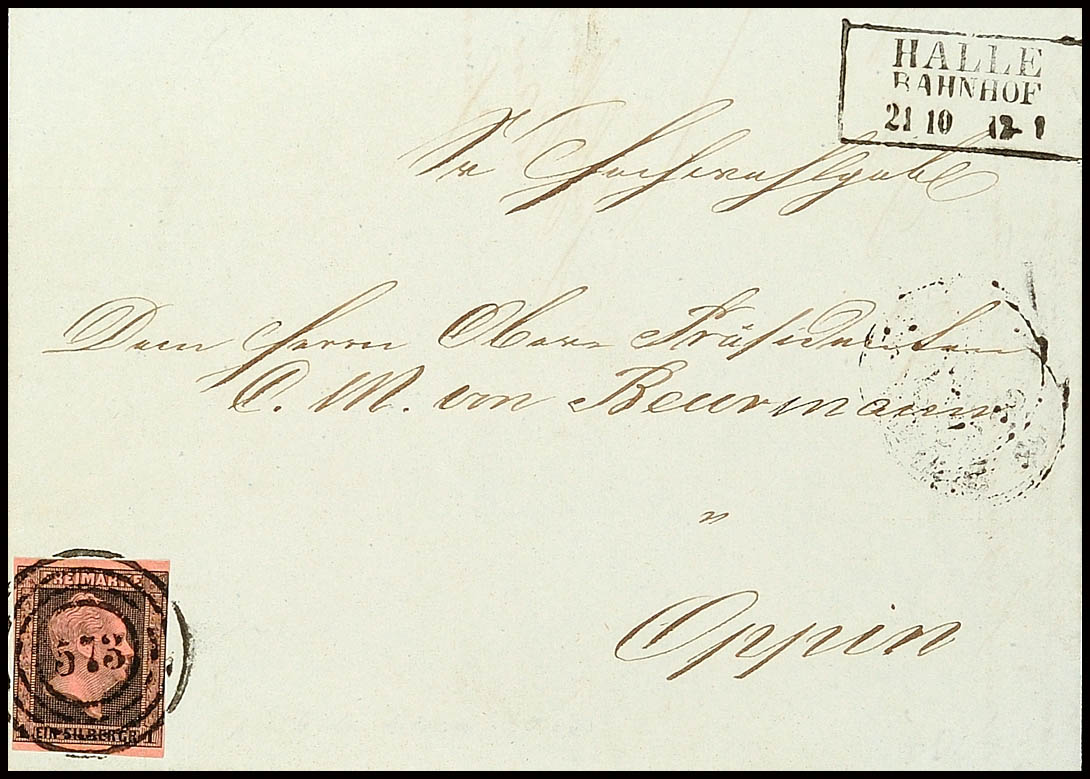 HALLE
BAHNHOF
21 10 12-1
Dem Herrn Ober Präsidenten
C. M. von Beurmann
Oppin
FREIMARKE
573
1 EIN SILBERGR. 1